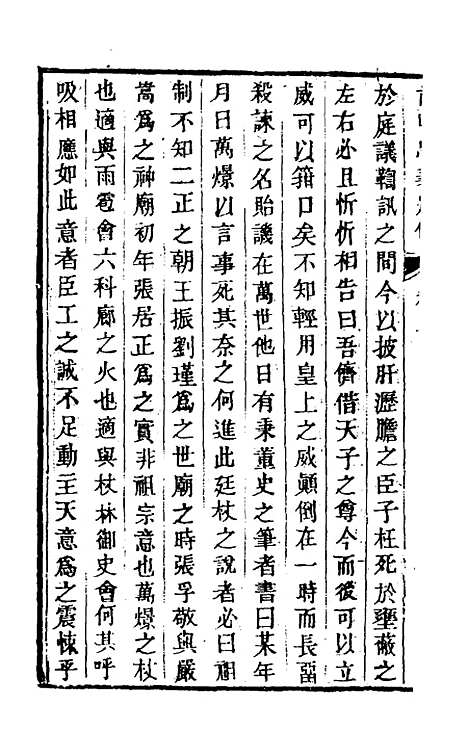 於庭議鞫訊之間今以披肝瀝膽之臣子枉死於壅蔽之
左右必且忻忻相告曰吾儕借天子之尊今而後可以立
威可以箝口矣不知輕用皇上之威顛倒在一時而長畱
殺諫之名貽譏在萬世他日有秉董史之筆者書曰某年
月日萬爆以言事死其奈之何進此廷杖之說者必曰祖
制不知二正之朝王振劉瑾爲之世廟之時張孚敬與嚴
嵩爲之神廟初年張居正爲之實非祖宗意也萬爆之杖
也適與雨雹會六科廊之火也適與杖林御史會何其呼
吸相應如此意者臣工之誠不足動主天意爲之震悚乎